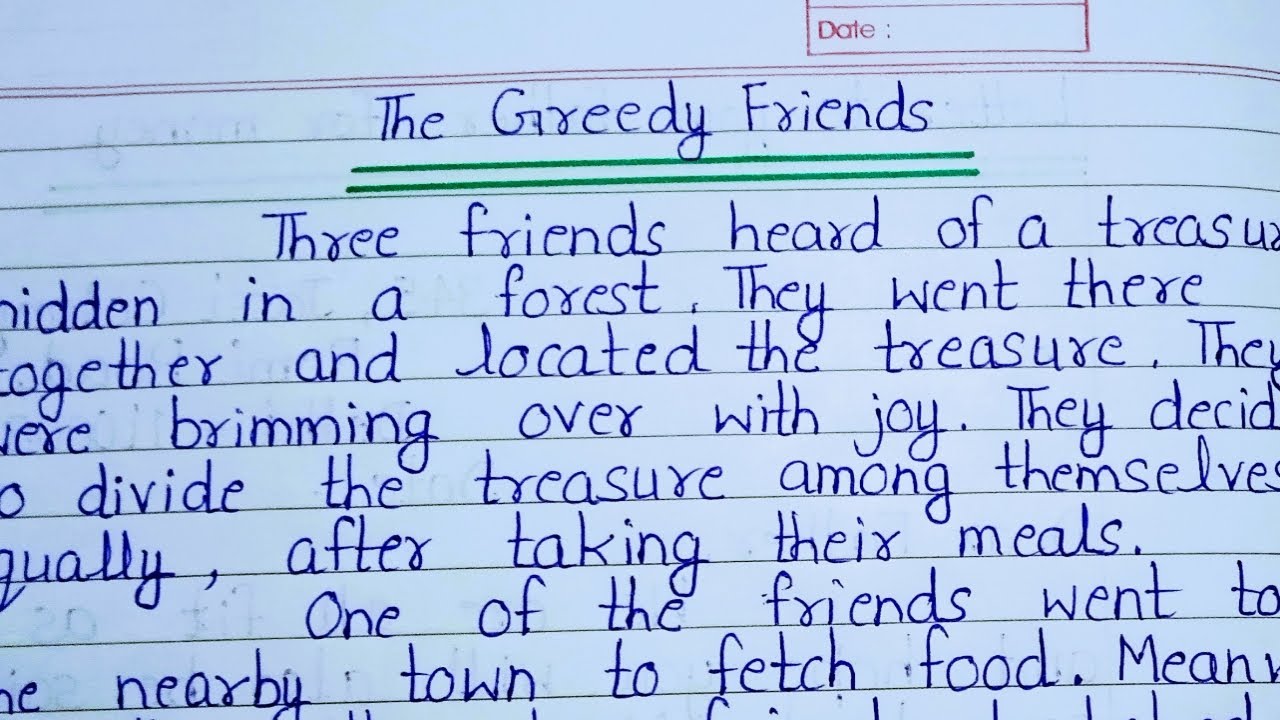 Date :
The Greedy Friends
Three friends heard of a treasu
hidden in a forest. They went there
together and located the treasure. They
were brimming over with joy. They decid
to divide the treasure among themselves
qually, after taking their meals.
One of the friends went to
he nearby town to fetch food. Mean